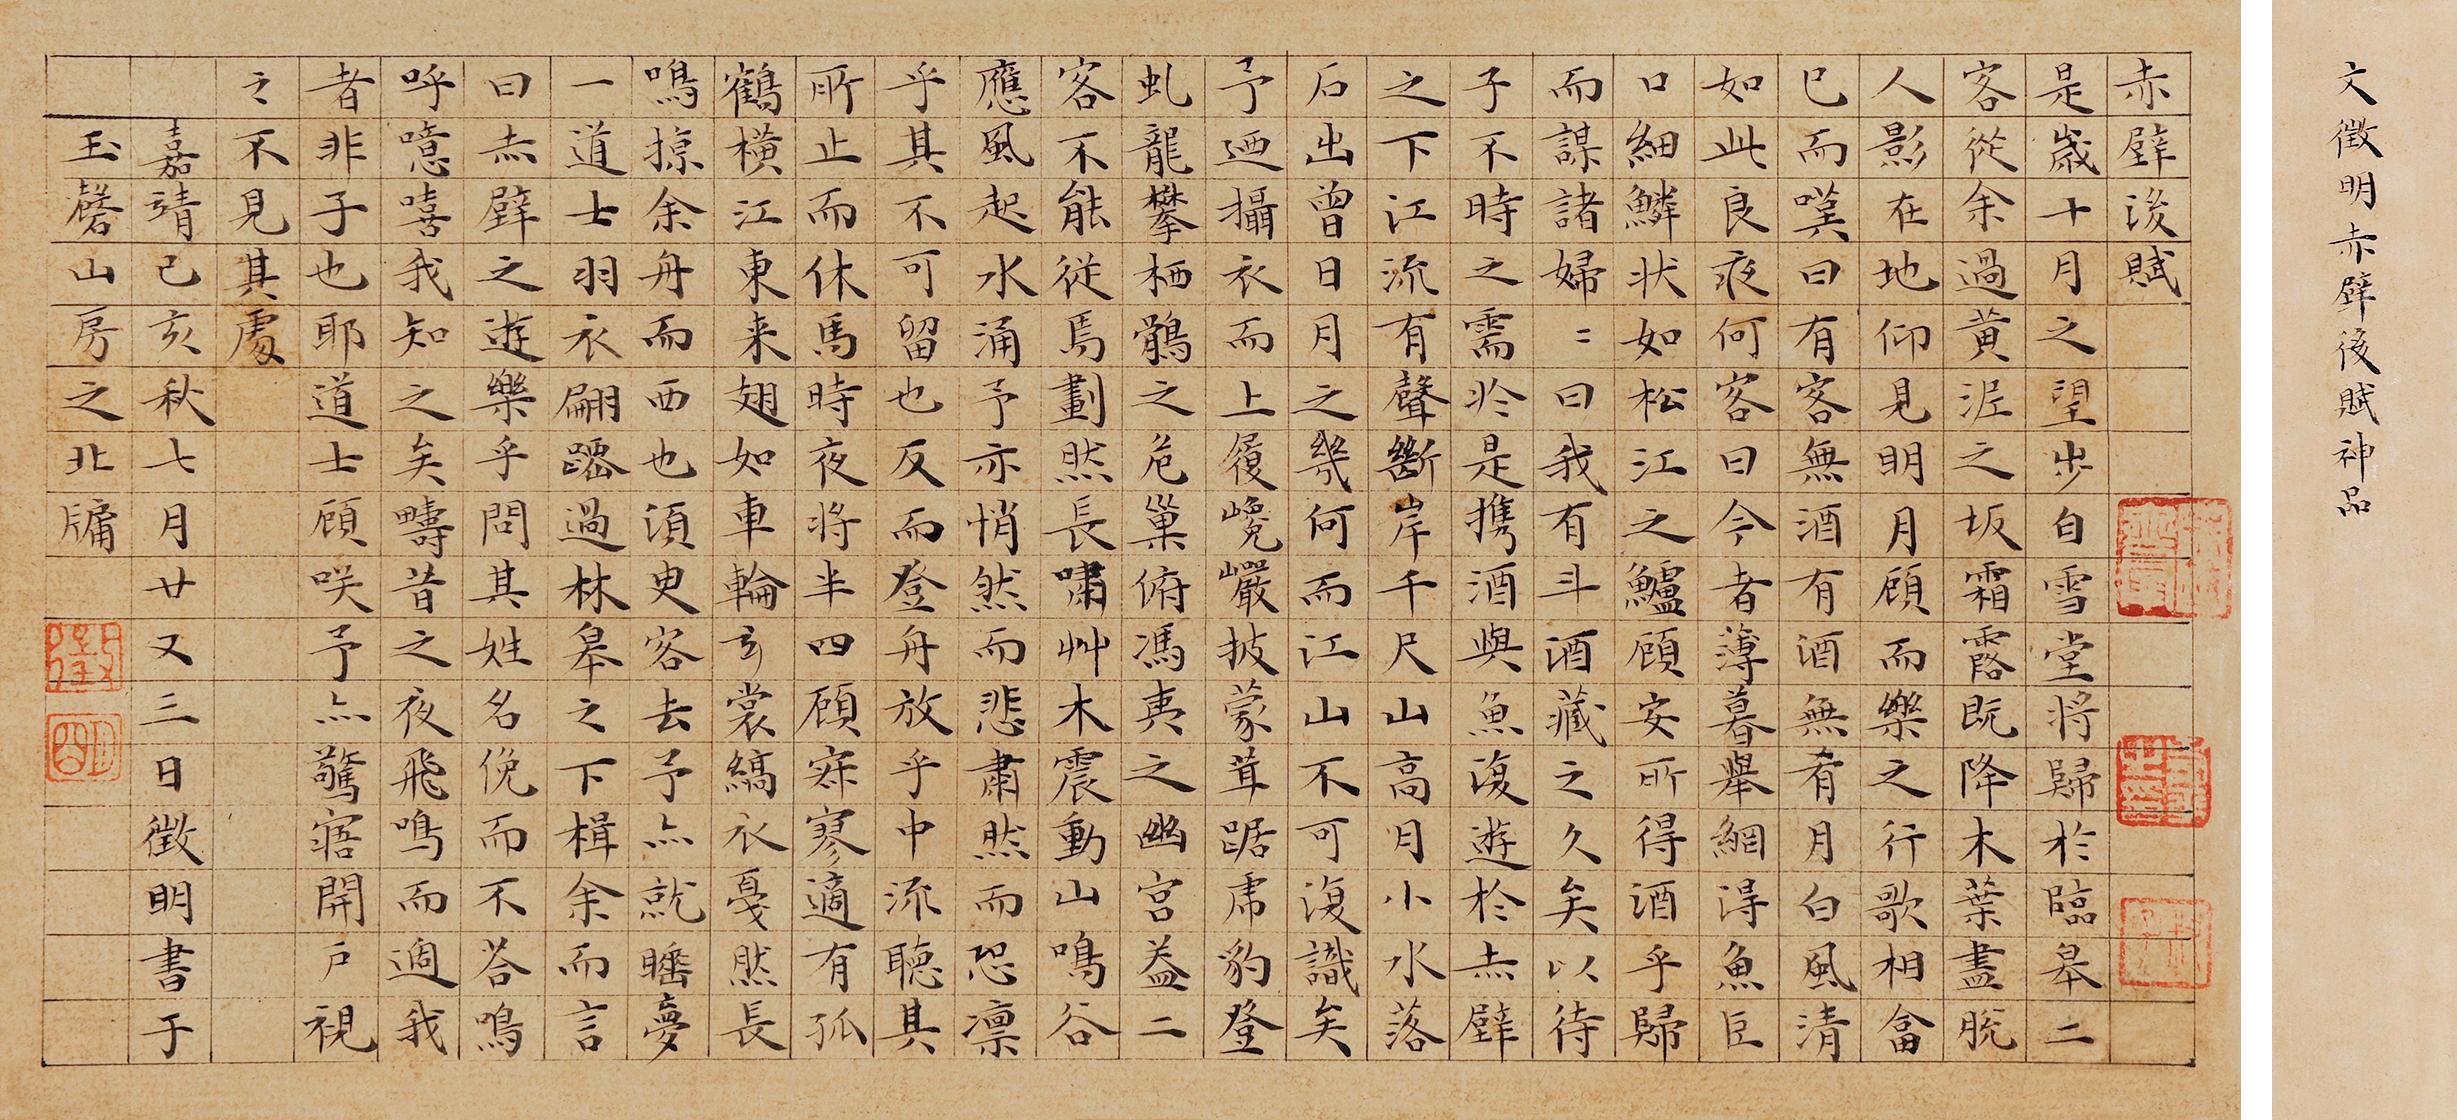 文徵明赤壁後賦神品
赤壁後賦
是歲十月之望步自雪堂將歸於臨皋二
客從余過黃泥之坂霜露既降木葉盡脫
人影在地仰見明月顧而樂之行歌相畣
已而嘆曰有客無酒有酒無肴月白風清
如此良夜何客曰今者薄暮舉網得魚巨
口細鱗狀如松江之鱸顧安所得酒乎歸
而謀諸婦〻曰我有斗酒藏之久矣以待
子不時之需於是携酒與魚復遊於赤壁
之下江流有聲斷岸千尺山高月小水落
石出曾日月之幾何而江山不可復識矣
予迺攝衣而上履巉巖披蒙茸踞虎豹登
虬龍攀栖鶻之危巢俯馮夷之幽宮蓋二
客不能從焉劃然長嘯艸木震動山鳴谷
應風起水涌予亦悄然而悲肅然而恐凛
乎其不可留也反而登舟放乎中流聽其
所止而休焉時夜將半四顧寂寥適有孤
鶴橫江東来翅如車輪玄裳縞衣戛然長
鳴掠余舟而西也須臾客去予亦就睡夢
一道士羽衣翩躚過林皋之下楫余而言
曰赤壁之遊樂乎問其姓名俛而不答鳴
呼噫嘻我知之矣疇昔之夜飛鳴而過我
者非子也耶道士顧咲予亦驚寤開戶視
之不見其處
嘉靖己亥秋七月廿又三日徵明書于
玉磬山房之北牖